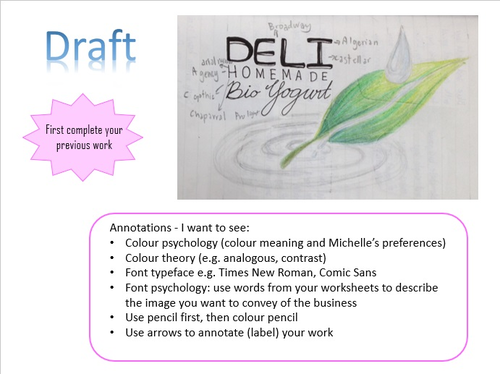 Draft
First complete your
previous work
Broadway
DELI
Algerian
HOMEMADE
Agency
Bio Yogurt
Annotations - I want to see:
• Colour psychology (colour meaning and Michelle's preferences)
• Colour theory (e.g. analogous, contrast)
• Font typeface e.g. Times New Roman, Comic Sans
• Font psychology: use words from your worksheets to describe
the image you want to convey of the business
• Use pencil first, then colour pencil
• Use arrows to annotate (label) your work